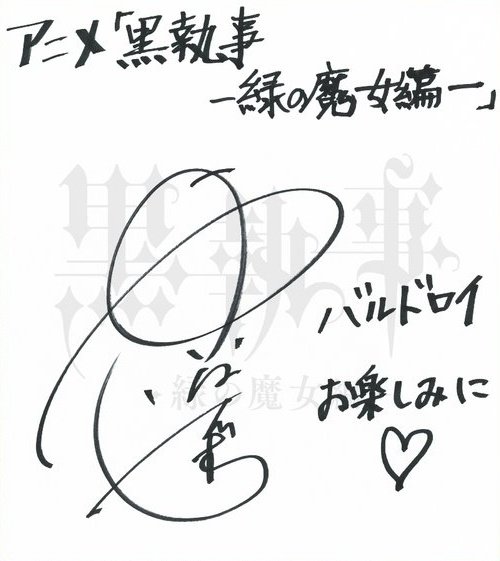 アニメ「黒執事
-緑の魔女編-」
黒執事
バルドロイ
-緑の魔女
お楽しみに